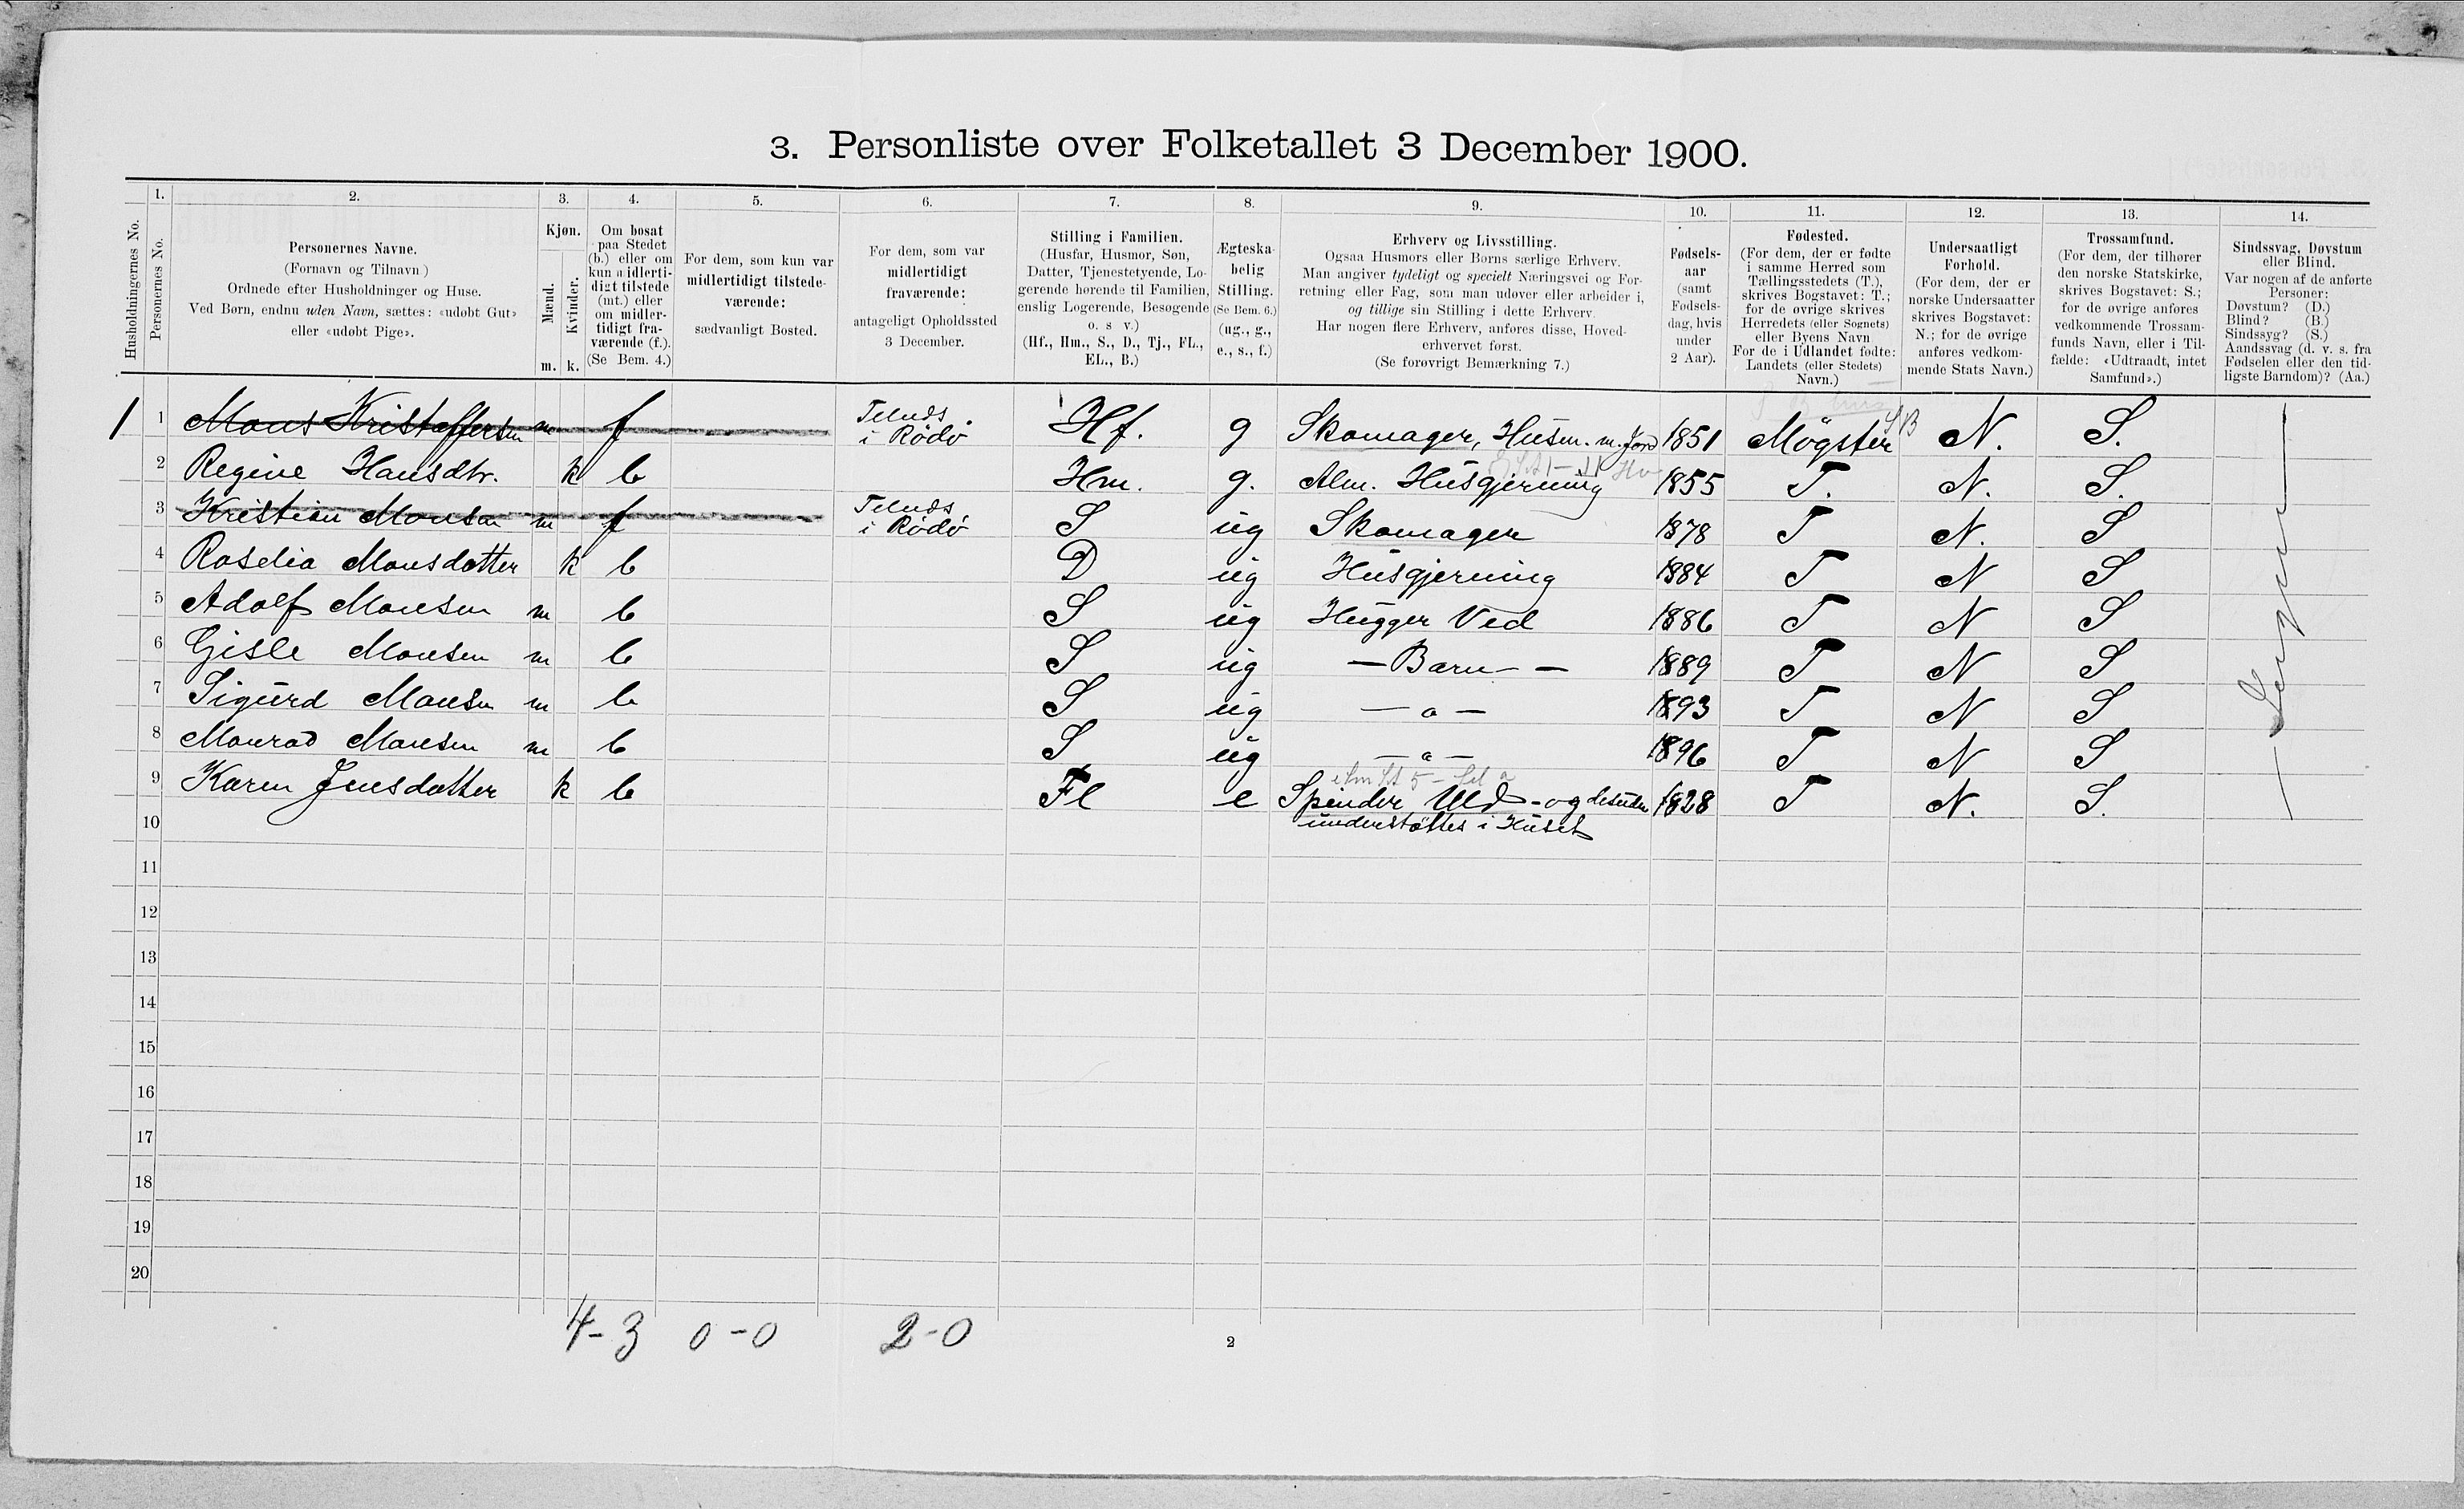 3. Personliste over Folketallet 3 December 1900.
1. 2. 3. 4. 5. 6. 7. 8. 9. 10. 11. 12. 13. 14.
Husholdningernes No.
Personernes No.
Personernes Navne.
(Fornavn og Tilnavn)
Ordnede efter Husholdninger og Huse.
Ved Børn, endnu uden Navn, sættes: «udøbt Gut»
eller «udøbt Pige».
Kjøn.
Mænd.
Kvinder.
m. k.
Om bosat
paa Stedet
(b.) eller om
kun midlerti-
digt tilstede
(mt.) eller
om midler-
tidigt fra-
værende (f.).
(Se Bem. 4.)
For dem, som kun var
midlertidigt tilstede-
værende:
sædvanligt Bosted.
For dem, som var
midlertidigt
fraværende:
antageligt Opholdssted
3 December.
Stilling i Familien.
(Husfar, Husmor, Søn,
Datter, Tjenestetyende, Lo-
gerende hørende til Familien,
enslig Logerende, Besøgende
o. s v.)
(Hf., Hm., S., D., Tj., FL.,
EL., B.)
Ægteska-
belig
Stilling.
(Se Bem. 6.)
(ug., g.,
e., s., f.)
Erhverv og Livsstilling.
Ogsaa Husmors eller Børns særlige Erhverv.
Man angiver tydeligt og specielt Næringsvei og For-
retning eller Fag, som man udøver eller arbeider i,
og tillige sin Stilling i dette Erhverv.
Har nogen flere Erhverv, anføres disse, Hoved-
erhvervet først.
(Se forøvrigt Bemærkning 7.)
Fødsels-
aar
(samt
Fødsels-
dag, hvis
under
2 Aar).
Fødested.
(For dem, der er fødte
i samme Herred som
Tællingsstedets (T.),
skrives Bogstavet: T.;
for de øvrige skrives
Herredets (eller Sognets)
eller Byens Navn
For de i Udlandet fødte:
Landets (eller Stedets)
Navn.)
Undersaatligt
Forhold.
(For dem, der er
norske Undersaatter
skrives Bogstavet:
N.; for de øvrige
anføres vedkom-
mende Stats Navn.)
Trossamfund.
(For dem, der tilhører
den norske Statskirke,
skrives Bogstavet: S.;
for de øvrige anføres
vedkommende Trossam-
funds Navn, eller i Til-
fælde: «Udtraadt, intet
Samfund».)
Sindssvag, Døvstum
eller Blind.
Var nogen af de anførte
Personer:
Døvstum? (D.)
Blind? (B.)
Sindssyg? (S.)
Aandssvag (d. v. s. fra
Fødselen eller den tid-
ligste Barndom)? (Aa.)
1 1 Mons Kristoffersen m f i Rödö Hf. g Skomager, Husm. m. Jord 1851 Mögster N. S.
2 Regine Hansdtr. k b Hm. g. Alm. Husgjerning 1855 T. N. S.
3 Kristian Monsen m f i Rödö S ug Skomager 1878 T N. S
4 Roselia Monsdatter k b D ug Husgjerning 1884 T N S
5 Adolf Monsen m b S ug Hugger Ved 1886 T N S
6 Gisle Monsen m b S ug — Barn — 1889 T N S
7 Sigurd Monsen m b S ug — a — 1893 T N S
8 Monrad Monsen m b S ug — a — 1896 T N S
9 Karen Jensdatter k b Fl e Spinder Uld - og desuden 1828 T N. S.
understöttes i Huset
— Ingen —
10
11
12
13
14
15
16
17
18
19
20
4-3 0-0 2-0
2